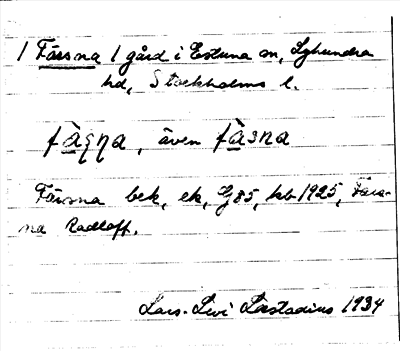 1 Färsna 1 gård i Estuna sn, Lyhundra
hd, Stockholms l.
fàṣṇa, även fàsna
Färsna bek, ek, Gj 85, kb 1925, Färs-
na Radloff.
Lars-Levi Læstadius 1934